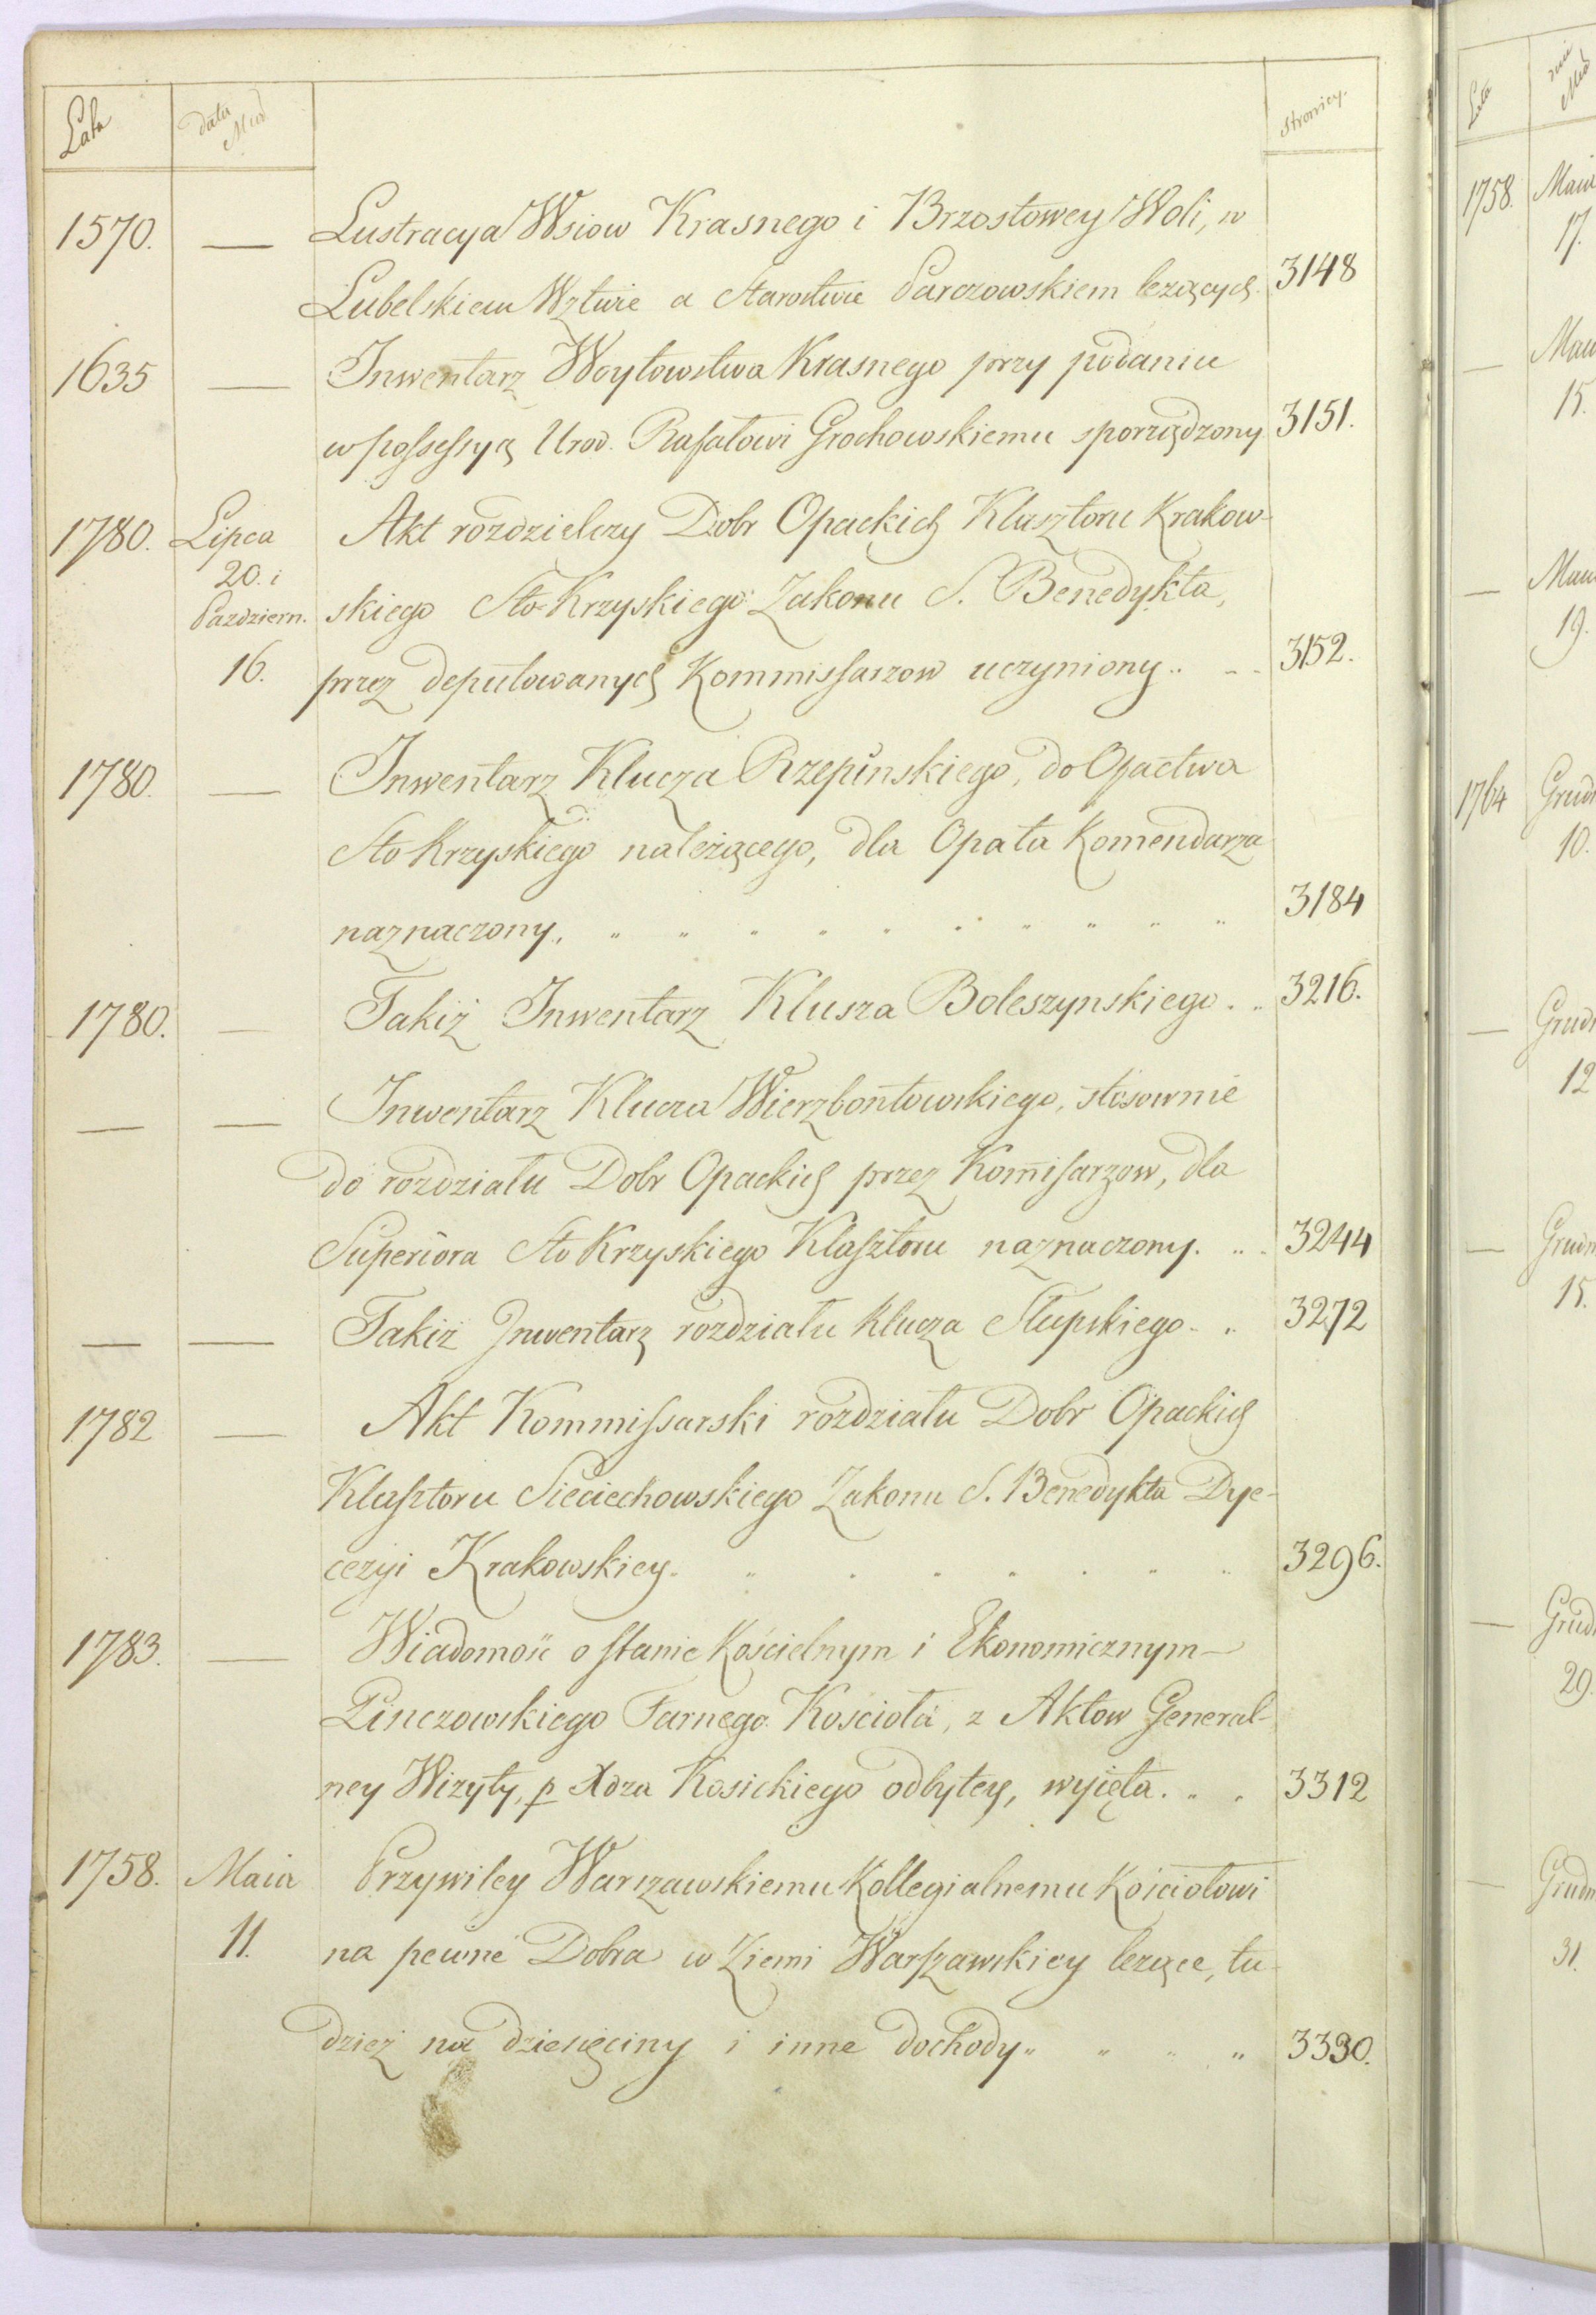 Lata data Mied stronicy.
1570. — Lustracya Wsiow Krasnego i Brzostowey Woli, w
Lubelskiem Wztwie a Starostwie Parczowskiem lezących. 3148
1635 — Inwentarz Woytowstwa Krasnego przy podaniu
w possessyą Urod. Rafałowi Grochowskiemu sporządzony 3151.
1780. Lipca Akt rozdzielczy Dobr Opackich Klasztoru Krakow-
20. i
Pazdziern. skiego Sto-Krzyskiego Zakonu S. Benedykta,
16. przez deputowanych Kommissarzow uczyniony. 3152.
1780. — Inwentarz Klucza Rzepinskiego, do Opactwa
Sto Krzyskiego należącego, dla Opata Komendarza
naznaczony. 3184
1780. — Takiż Inwentarz Klusza Boleszynskiego. 3216.
— — Inwentarz Klucza Wierzbontowskiego, stosownie
do rozdziału Dobr Opackich przez Kommisarzow, dla
Superiora Sto Krzyskiego Klasztoru naznaczony. 3244
— — Takiż Inwentarz rozdziału Klucza Słupskiego. 3272
1782 — Akt Kommissarski rozdziału Dobr Opackich
Klasztoru Sieciechowskiego Zakonu S. Benedykta Dye-
cezyi Krakowskiey. 3296.
1783. — Wiadomość o stanie Kościelnym i Ekonomicznym
Pinczowskiego Farnego Kościoła, z Aktow General-
ney Wizyty, p Xdza Kosickiego odbytey, wyięta. 3312
1758. Maia Przywiley Warszawskiemu Kollegialnemu Kościołowi
11. na pewne Dobra w Ziemi Warszawskiey lezące, tu-
dzież na dziesięciny i inne dochody 3330.
Lata
1758.
17.
—
15.
—
19.
1764
10.
—
12
—
15.
—
29.
—
31.